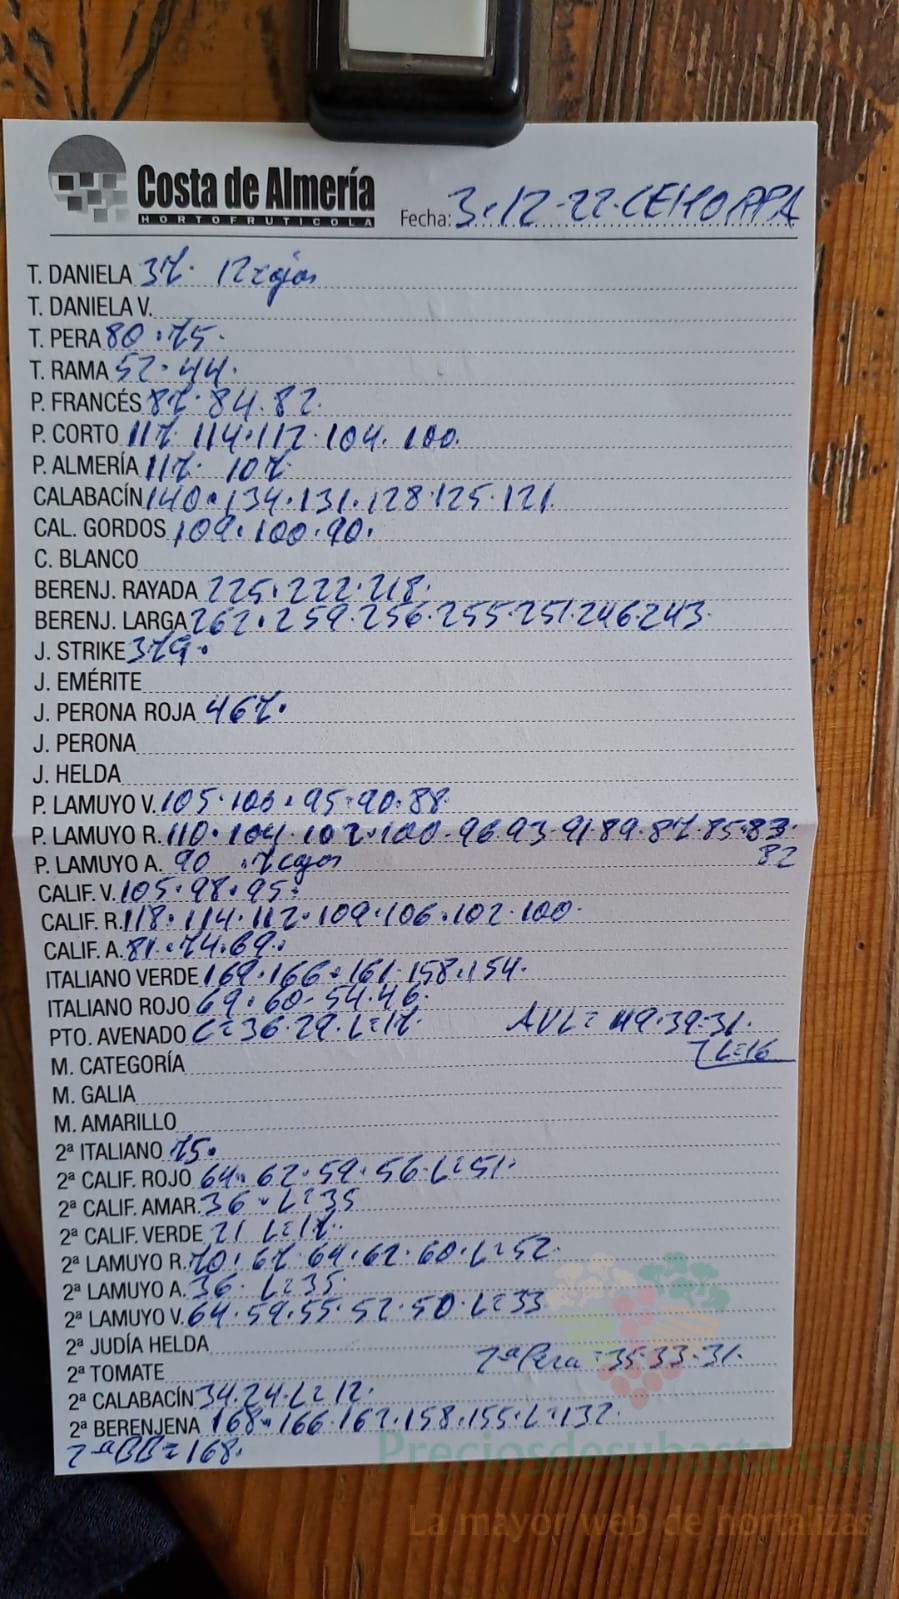 Costa de Almería
HORTOFRUTICOLA
Fecha: 3.12.22.CEHORPA
T. DANIELA 37. 12 cajas
T. DANIELA V.
T. PERA 80.75.
T. RAMA 52.44.
P. FRANCÉS 87.84.82.
P. CORTO 117 114.112.104.100.
P. ALMERÍA 117. 107.
CALABACÍN 140.134.131.128.125.121.
CAL. GORDOS 109.100.90.
C. BLANCO
BERENJ. RAYADA 225.222.218.
BERENJ. LARGA 262.259.256.255.251.246.243.
J. STRIKE 379.
J. EMÉRITE
J. PERONA ROJA 467.
J. PERONA
J. HELDA
P. LAMUYO V. 105.103.95.90.88.
P. LAMUYO R. 110.104.102.100.96.93.91.89.87.85.83.
82
P. LAMUYO A. 90 .7 cajas
CALIF. V. 105.98.95.
CALIF. R. 118.114.112.109.106.102.100.
CALIF. A. 81.74.69.
ITALIANO VERDE 169.166.161.158.154.
ITALIANO ROJO 69.60.54.46.
PTO. AVENADO C=36.29.L=17. AVL=49.39.31.
L=16
M. CATEGORÍA
M. GALIA
M. AMARILLO
2ª ITALIANO 75.
2ª CALIF. ROJO 64.62.59.56.L=51.
2ª CALIF. AMAR. 36.L=35
2ª CALIF. VERDE 21 L=17.
2ª LAMUYO R. 70.67.64.62.60.L=52.
2ª LAMUYO A. 36. L=35.
2ª LAMUYO V. 64.59.55.52.50.L=33
2ª JUDÍA HELDA
2ª TOMATE 2ªPera=35.33.31.
2ª CALABACÍN 34.24.L=12.
2ª BERENJENA 168.166.162.158.155.L=132.
2ªBB=168.
Preciosdesubasta.com
La mayor web de hortalizas